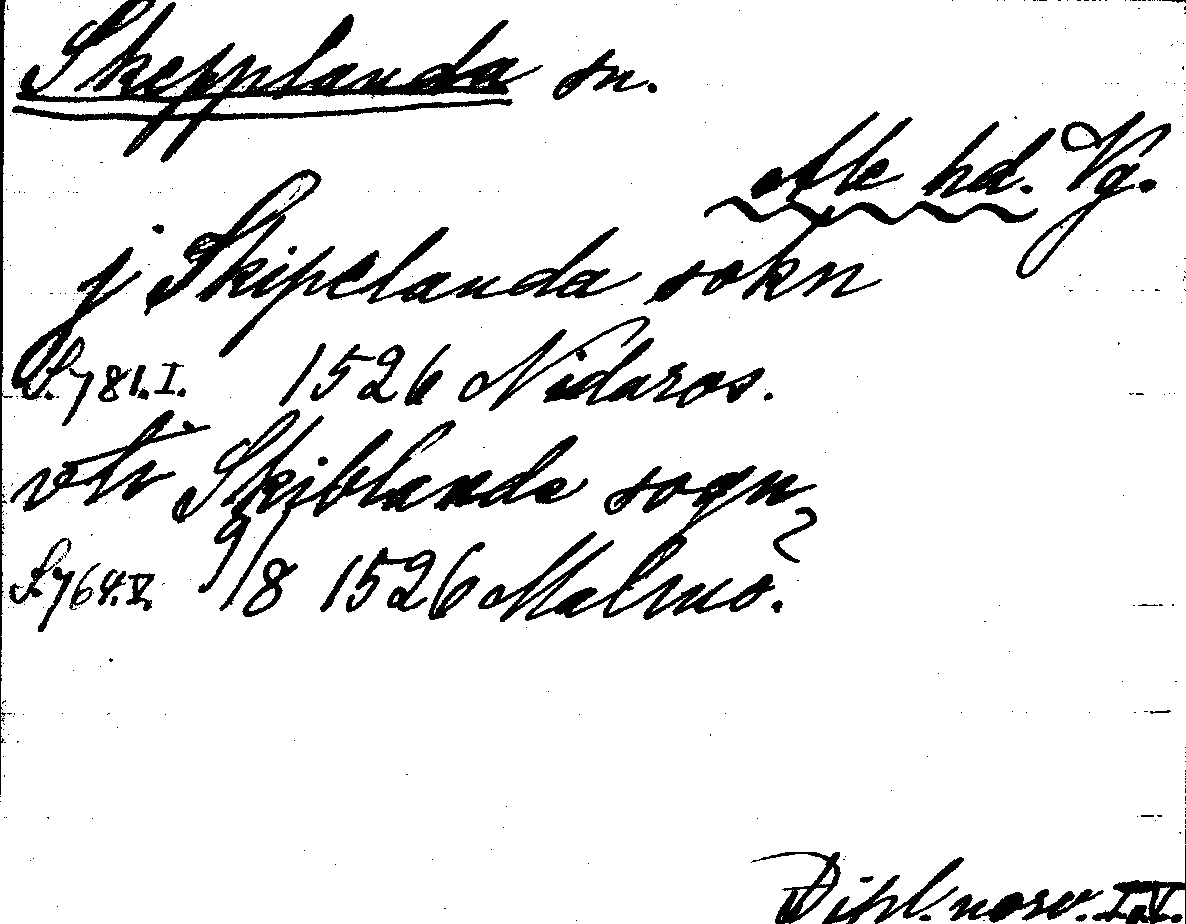 Skepplanda sn.
Ale hd. Vg.
j Skipelanda sokn
S. 781. I. 1526 Nidaros.
vti Skiblande sogn
S. 764. V. 9/8 1526 Malmö.
Dipl. norv. I, V.